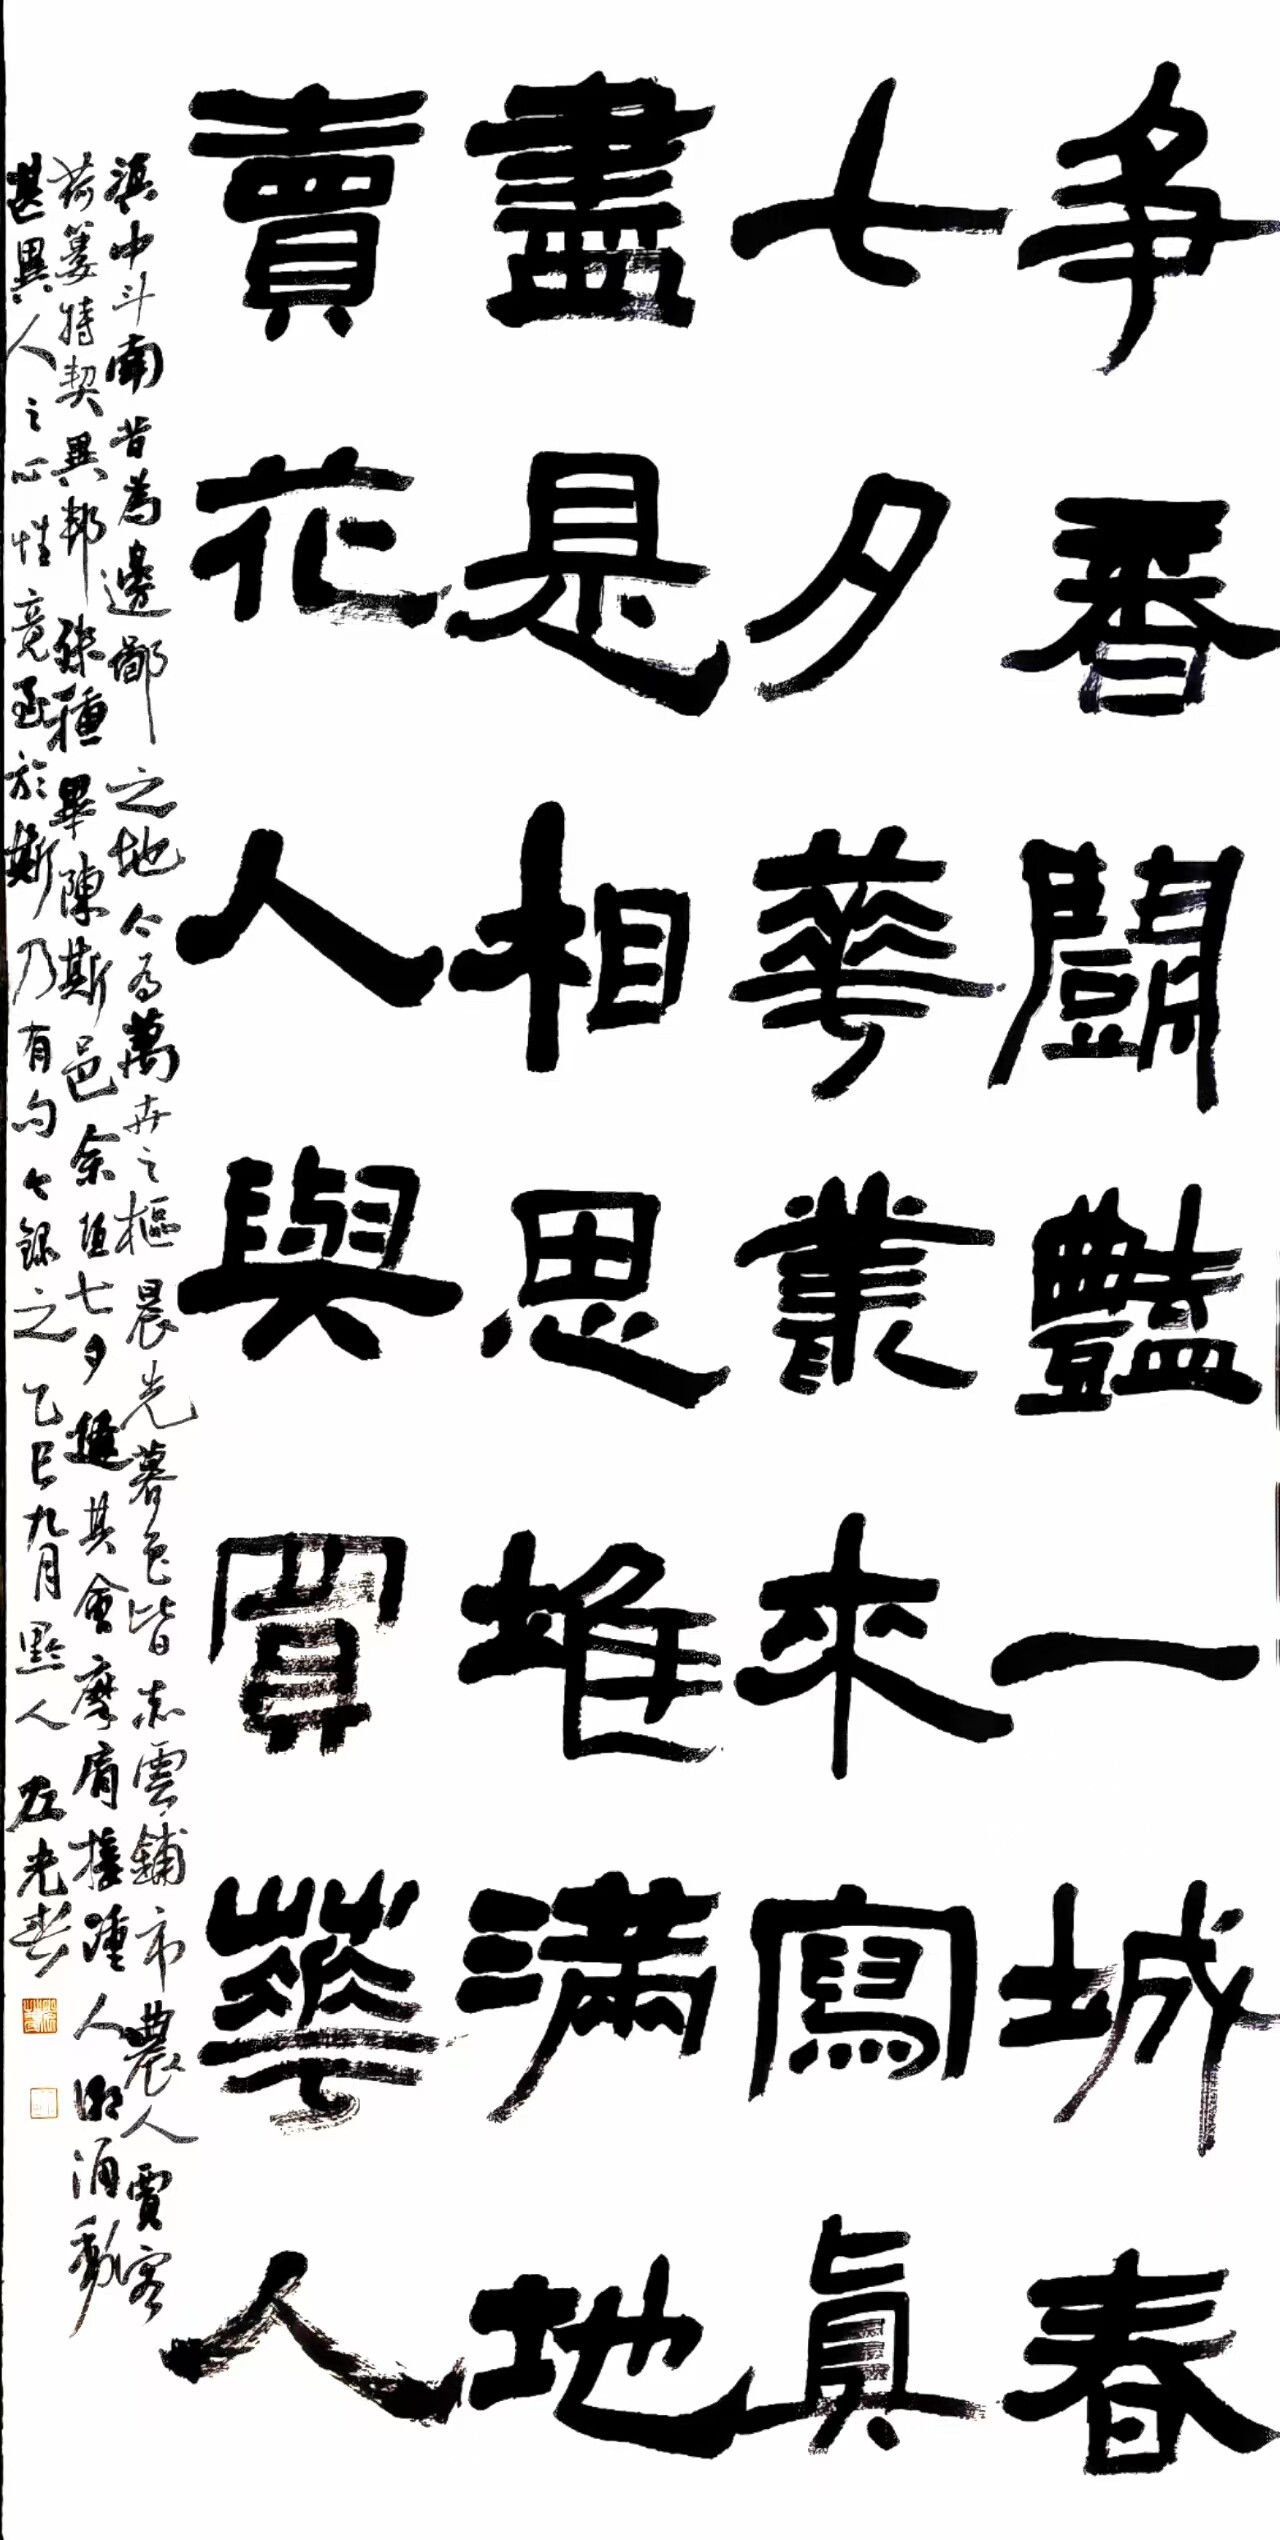 爭香鬪豔一城春
七夕華叢來寫真
盡是相思堆滿地
賣花人與買華人
滇中斗南昔為邊鄙之地今為萬卉之樞晨光暮色皆赤雲鋪市農人賈客
荷蔞特契異邦殊種畢陳斯邑余值七夕趨其會摩肩接踵人潮涌動
甚異人之心性竟至於斯乃有句句錄之乙巳九月黔人左光春